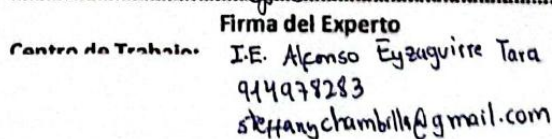 Firma del Experto
Centro de Trabajo: I.E. Alfonso Eyzaguirre Tara
914978283
steffanychambilla@gmail.com